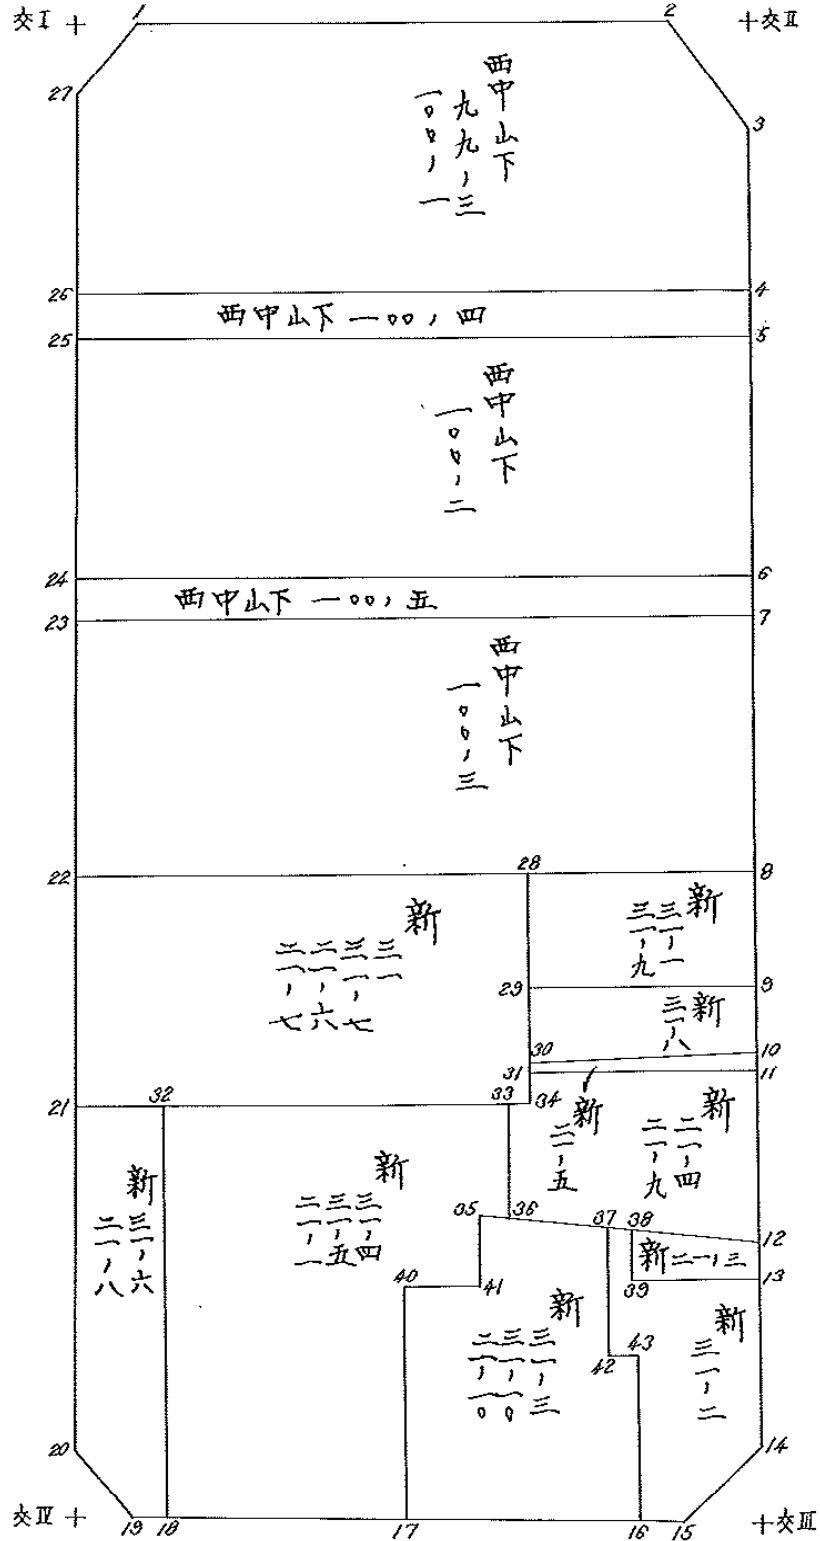 交I
1
2
交II
27
3
西中山下
九九,三
一〇〇,一
26
4
西中山下一〇〇,四
25
5
西中山下
一〇〇,二
24
6
西中山下一〇〇,五
23
7
西中山下
一〇〇,三
22
28
8
新
三一
三一,七
二一,六
二一,七
新
三一,一
三一,九
29
9
新
三一,八
30
10
31
11
21
32
33
34
新
二一,五
新
二一,四
二一,九
新
三一,六
二一,八
新
三一,四
三一,五
二一,一
35
36
37
38
12
新二一,三
40
41
39
13
新
三一,三
三一,一〇
二一,一〇
42
43
新
三一,二
20
14
交IV
19
18
17
16
15
交III